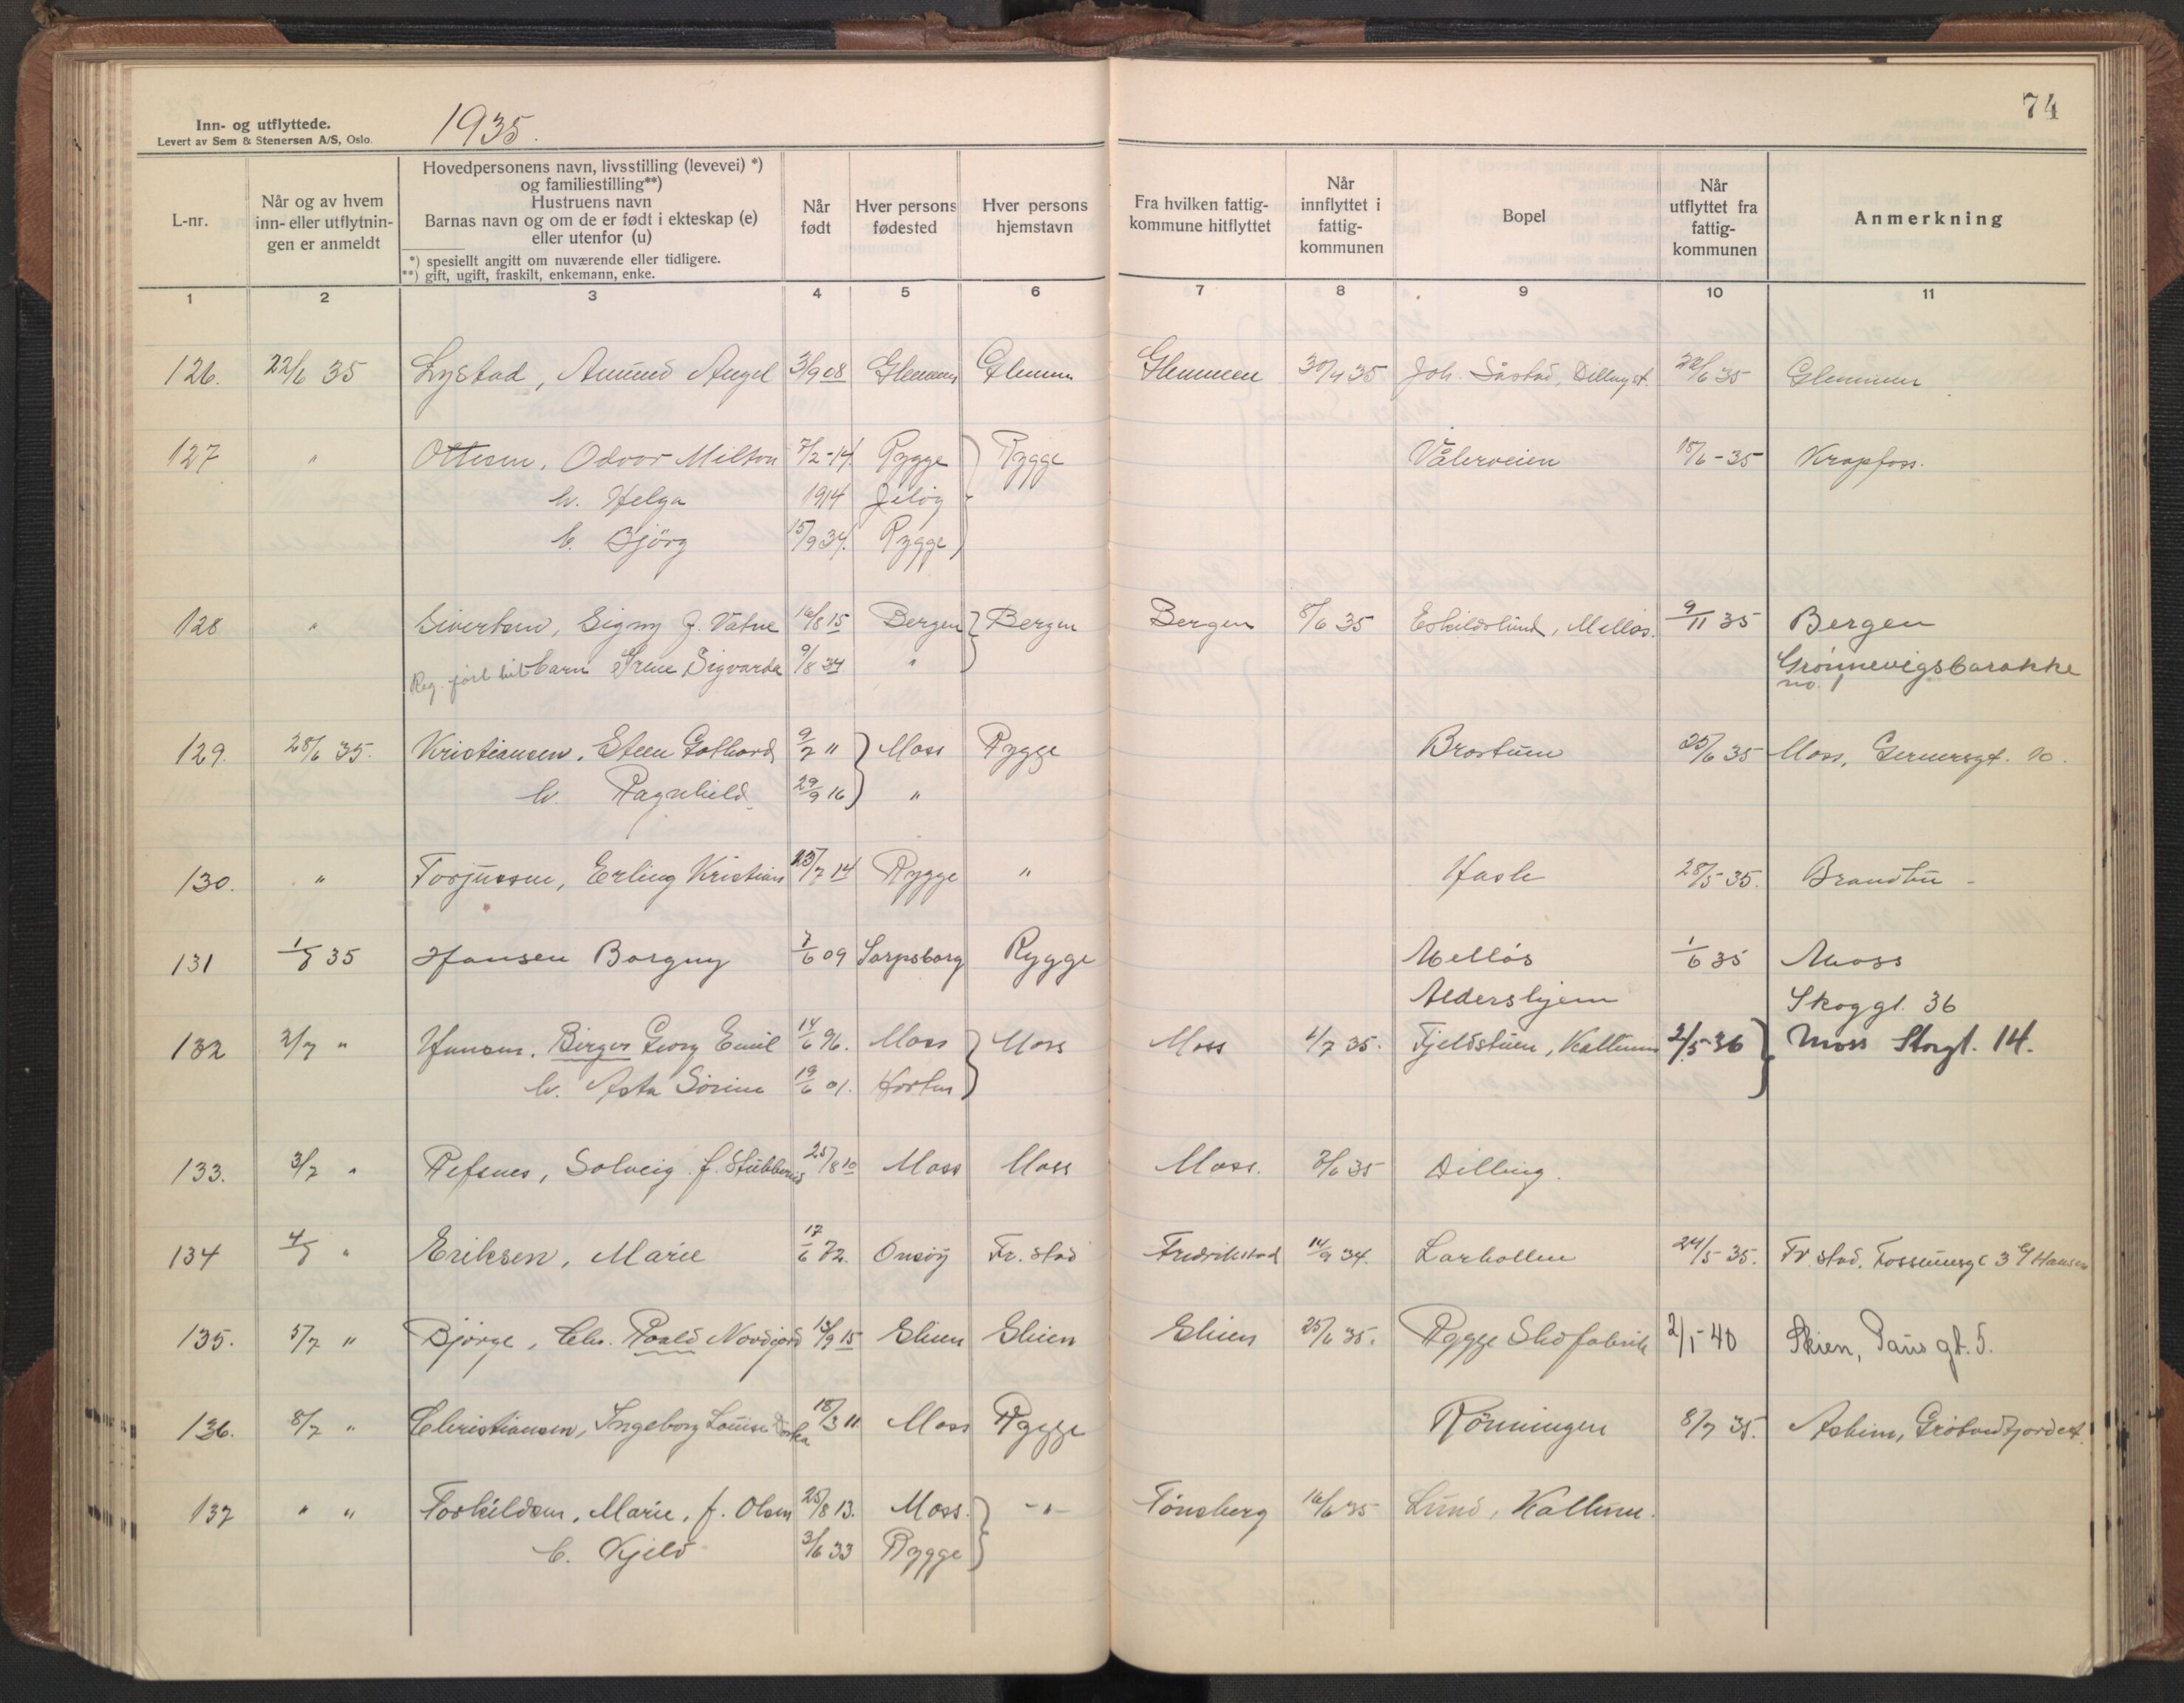 74
Inn- og utflyttede.
Levert av Sem & Stenersen A/S, Oslo.
1935.
L-nr.
Når og av hvem inn- eller utflytnin- gen er anmeldt
Hovedpersonens navn, livsstilling (levevei) *)
og familiestilling**)
Hustruens navn
Barnas navn og om de er født i ekteskap (e)
eller utenfor (u)
*) spesiellt angitt om nuværende eller tidligere.
**) gift, ugift, fraskilt, enkemann, enke.
Når født
Hver persons fødested
Hver persons hjemstavn
Fra hvilken fattig- kommune hitflyttet
Når innflyttet i fattig- kommunen
Bopel
Når utflyttet fra fattig- kommunen
Anmerkning
1 2 3 4 5 6 7 8 9 10 11
126. 22/6 35 Lystad, Amund Angel 3/9 08 Glemmen Glemmen Glemmen 30/4 35 Joh. Såstad, Dilling st. 22/6 35 Glemmen
127 " Ottesen, Odvar Milton 7/2-14. Rygge Rygge Vålerveien 18/6-35 Krapfoss.
h. Helga 1914 Jeløy
b. Bjørg 15/9 34. Rygge
128 " Sivertsen, Signy f. Vatne 16/8 15 Bergen Bergen Bergen 8/6 35 Eskildslund, Melløs. 9/11 35 Bergen
Reg. ført hit barn Irene Sigvarda 9/8 34 " Grønnevigsbarakke
no. 1
129. 28/6 35. Kristiansen, Steen Gothard 9/7 11 Moss Rygge Brostuen 25/6 35 Moss, Gernersgt. 10.
h. Ragnhild 29/9 16 "
130. " Torjussen, Erling Kristian 25/7 14 Rygge " Hasle 28/5 35. Brandbu -
131 1/7 35 Hansen Borgny 7/6 09 Sarpsborg Rygge Melløs 1/6 35 Moss
Aldershjem Skoggt. 36
132 2/7 " Hansen, Birger Georg Emil 14/6 96. Moss Moss Moss 1/7 35. Fjeldstuen, Kallum 2/5-36 Moss Storgt. 14.
h. Asta Sørine 19/6 01. Horten
133. 3/7 " Refsnes, Solveig f. Stubberud 25/8 10 Moss Moss Moss. 3/6 35 Dilling.
134 4/7 " Eriksen, Marie 17/6 72. Onsøy Fr.stad Fredrikstad 14/9 34. Larkollen 24/5 35. Fr.stad. 3 Hansen
135. 5/7 " Bjørge, Chr. Roald Nordgård 13/9 15 Skien Skien Skien 25/6 35. Rygge Skofabrik 2/1-40 Skien, Paus gt. 5.
136. 8/7 " Christiansen, Ingeborg Louise 18/3 11 Moss Rygge Rønningen 8/7 35. Askim,
137 " " Torkildsen, Marie, f. Olsen 25/8 13. Moss. -"- Tønsberg 16/6 35 Lund, Kallum.
b. Kjeld 3/6 33 Rygge